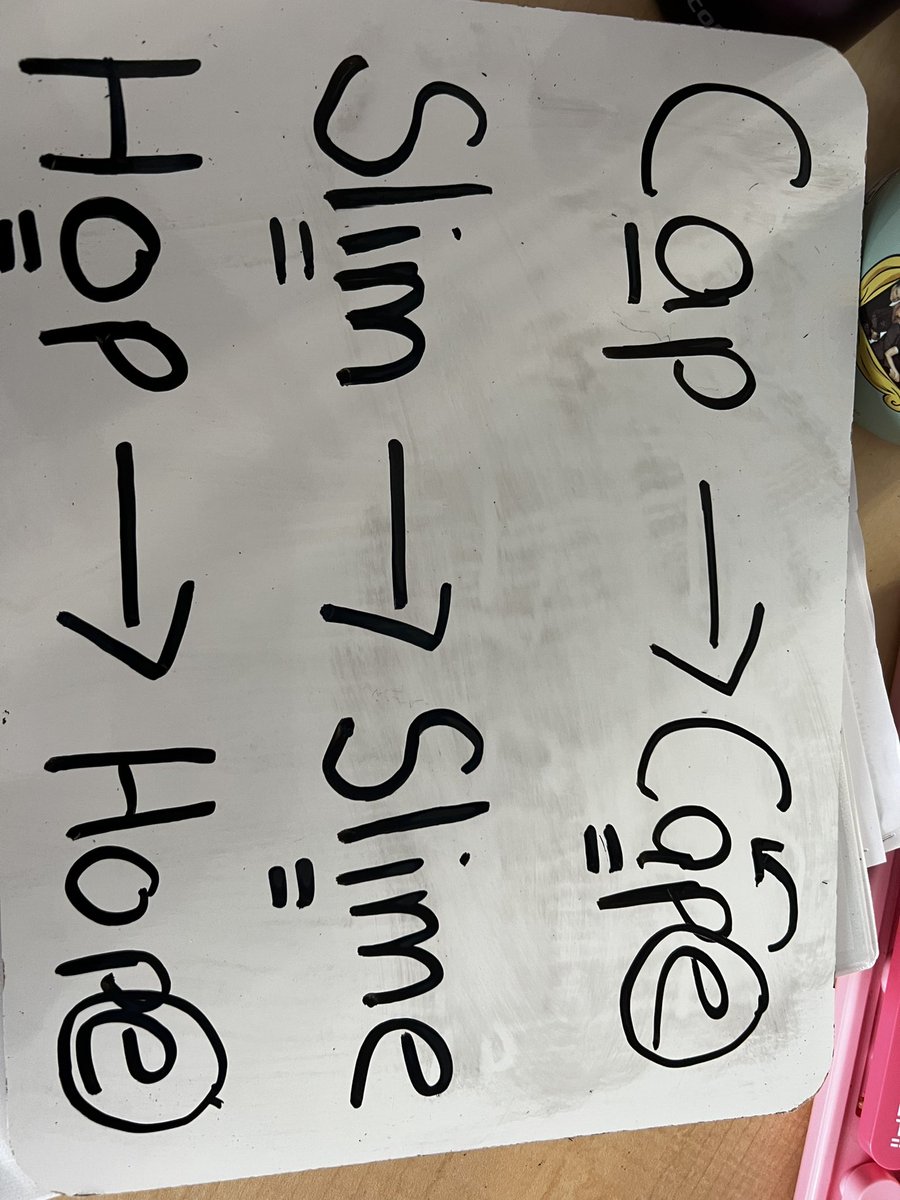 Cap → Cape
Slim → Slime
Hop → Hope